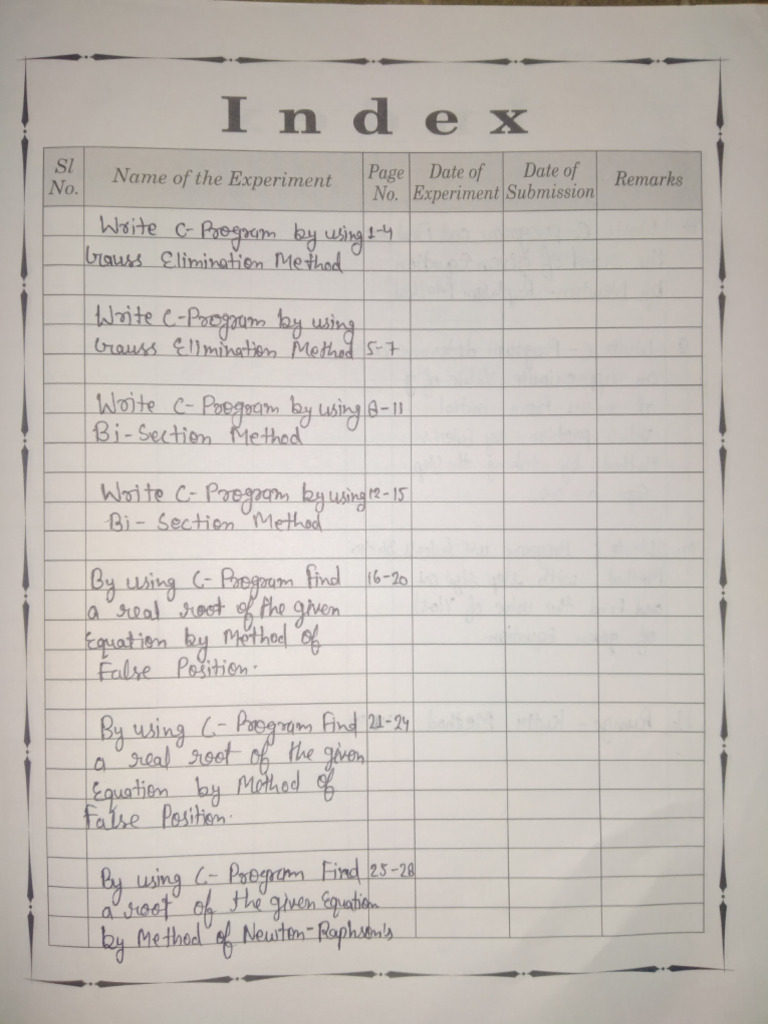 Index
Sl No. Name of the Experiment Page No. Date of Experiment Date of Submission Remarks
Write C-Program by using 1-4
Gauss Elimination Method
Write C-Program by using
Gauss Ellimination Method 5-7
Write C-Program by using 8-11
Bi-Section Method
Write C-Program by using 12-15
Bi-Section Method
By using C-Program find 16-20
a real root of the given
Equation by Method of
False Position.
By using C-Program find 21-24
a real root of the given
Equation by Method of
False Position.
By using C-Program Find 25-28
a root of the given Equation
by Method of Newton-Raphson's